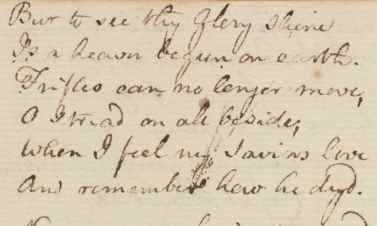 But to see thy Glory shine
Is a heavn begun on earth.
Trifles can no longer move,
O I tread on all beside,
When I feel my Saviors love
And remember how he dyd.